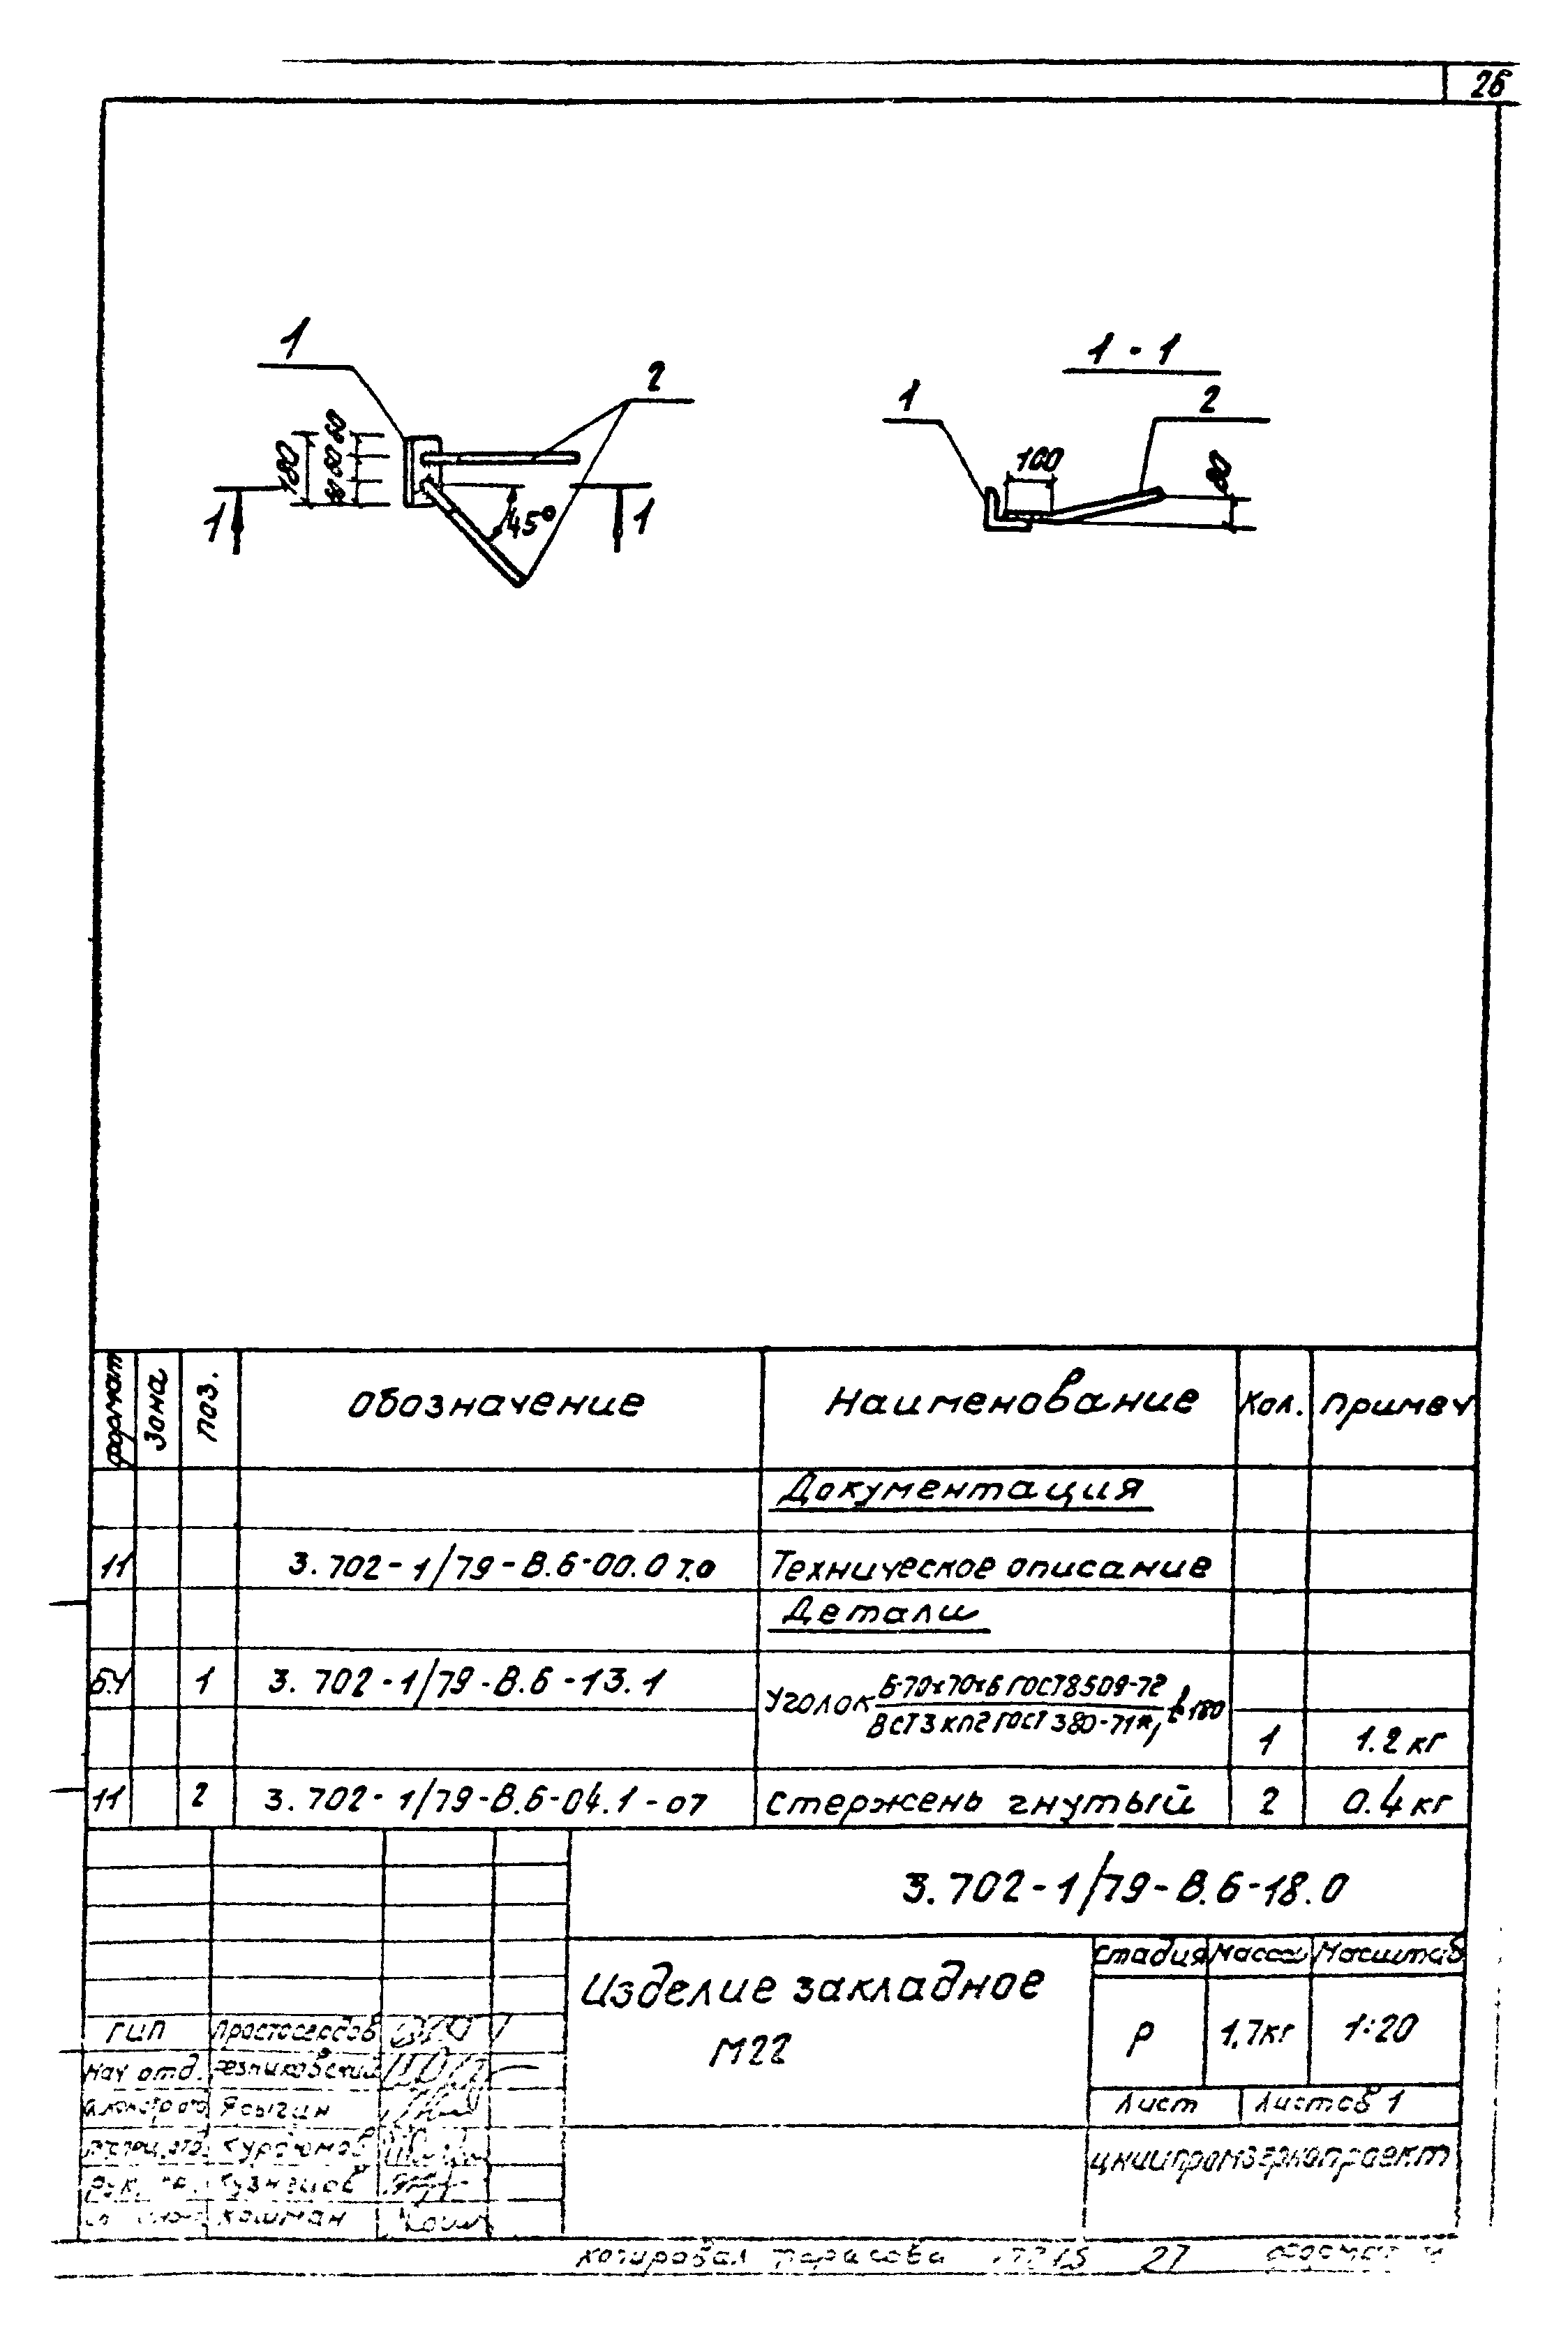 26
1
2
180
60
60
60
45°
1
1
1 - 1
1
2
100
80
формат
Зона
поз.
Обозначение
Наименование
Кол.
Примеч
Документация
11
3.702-1/79-В.6-00.0 т.о
Техническое описание
Детали
Б.Ч
1
3.702-1/79-В.6-13.1
Уголок Б-70×70×6 ГОСТ 8509-72
ВСТ3кп2 ГОСТ 380-71*, ℓ=180
1
1.2 кг
11
2
3.702-1/79-В.6-04.1-07
Стержень гнутый
2
0.4 кг
3.702-1/79-В.6-18.0
Изделие закладное
М22
Стадия
Масса
Масштаб
Р
1,7кг
1:20
Лист
Листов 1
ЦНИИпромзернопроект
ГИП
Простосердов
Нач отд.
Резниковский
Ясыгин
Кузнецов
Кошман
Копировал Тарасова
27